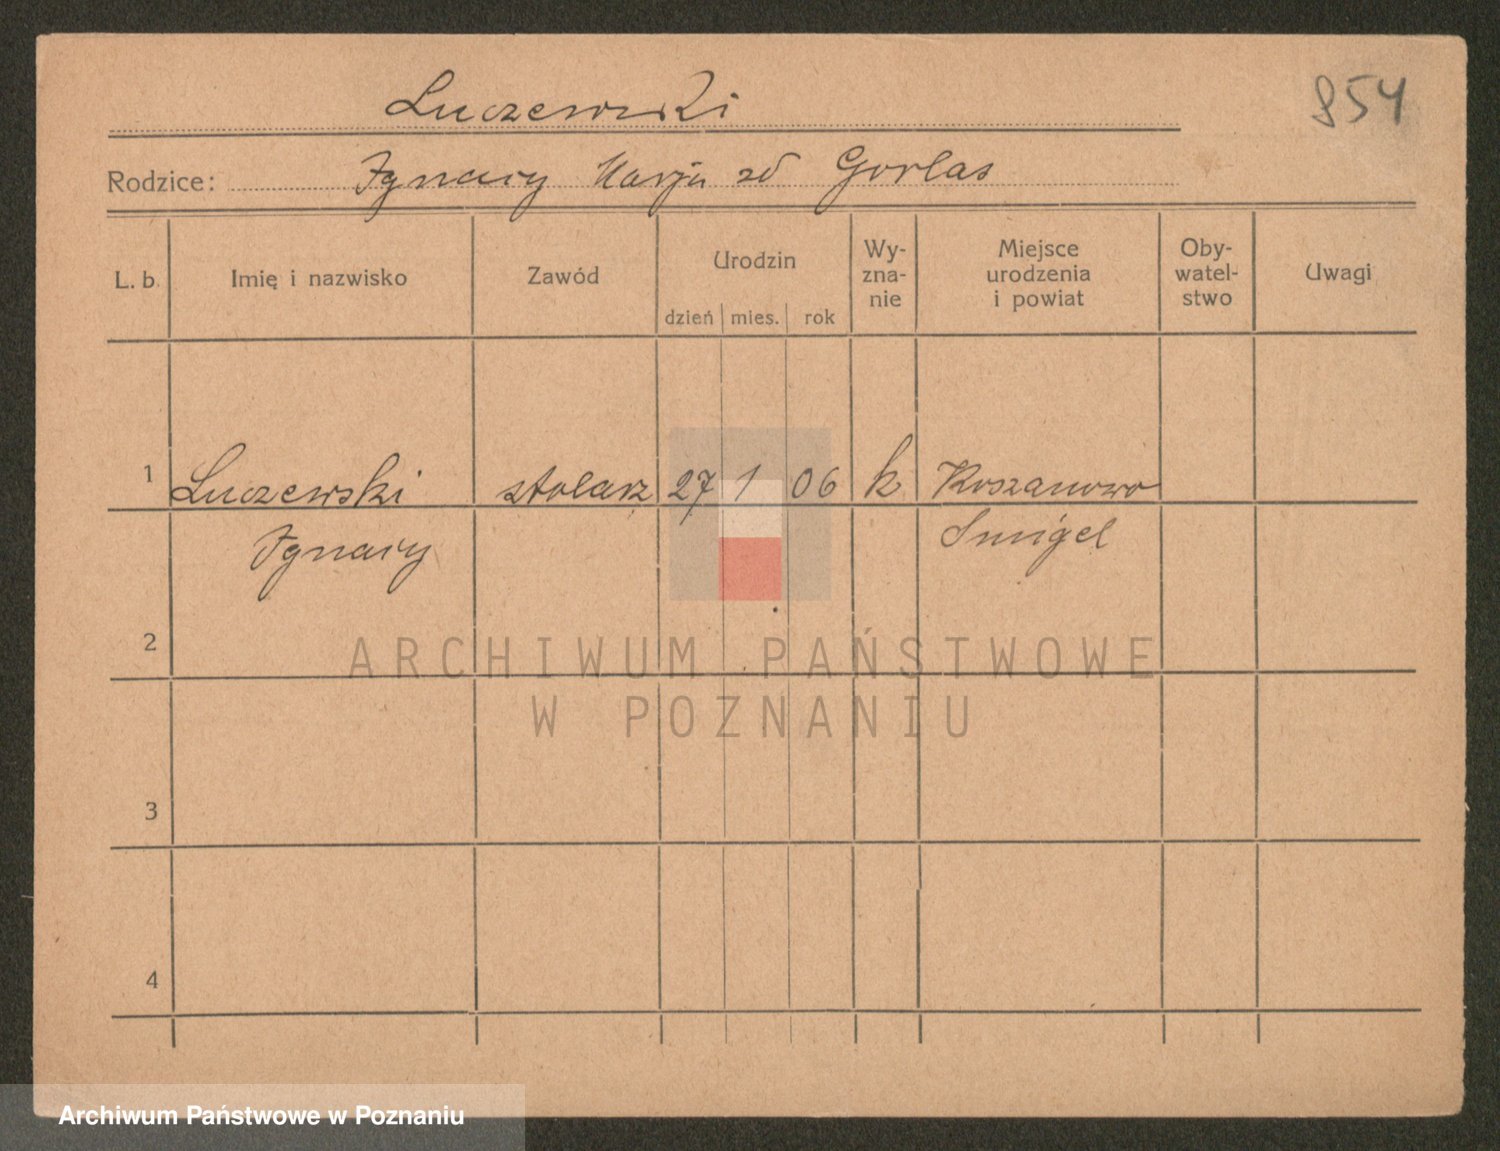 Luczewski
854
Rodzice: Ignacy Marja zd Gorlas
L. b. Imię i nazwisko Zawód Urodzin dzień mies. rok Wy-zna-nie Miejsce urodzenia i powiat Oby-watel-stwo Uwagi
1 Luczewski stolarz 27 1 06 k Koszanowo
Ignacy Smigel
2
ARCHIWUM PAŃSTWOWE
W POZNANIU
3
4
Archiwum Państwowe w Poznaniu